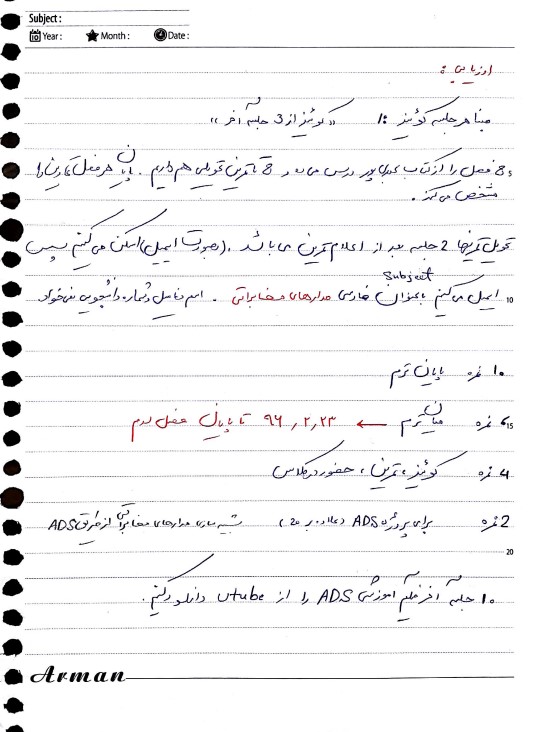 Subject :
Year : Month : Date :
ارزیابی :
مبنا هر جلسه کوئیز !: «کوئیز از 3 جلسه آخر»
8 فصل را از کتاب عبدی پور درس می‌دهد و 8 تا تمرین تحویلی هم داریم. پایان هر فصل تمارین را
مشخص می‌کند.
تحویل تمرینها 2 جلسه بعد از اعلام تمرین می باشد. (بصورت ایمیل) اسکن می‌کنیم سپس
Subject
10 ایمیل می‌کنیم بعنوان فارسی مدارهای مخابراتی . اسم فامیل و شماره دانشجویی نمی‌خواد
۱۰ نمره پایان ترم
15 ۶ نمره میان ترم ← ۹۶,۲,۲۳ تا پایان فصل دوم
۴ نمره کوئیز، تمرین، حضور در کلاس
2 نمره برای پروژه ADS (علاوه بر 20) شبیه سازی مدارهای مخابراتی از طریق ADS
20
۱۰ جلسه آخر فیلم آموزشی ADS را از utube دانلود کنیم.
Arman